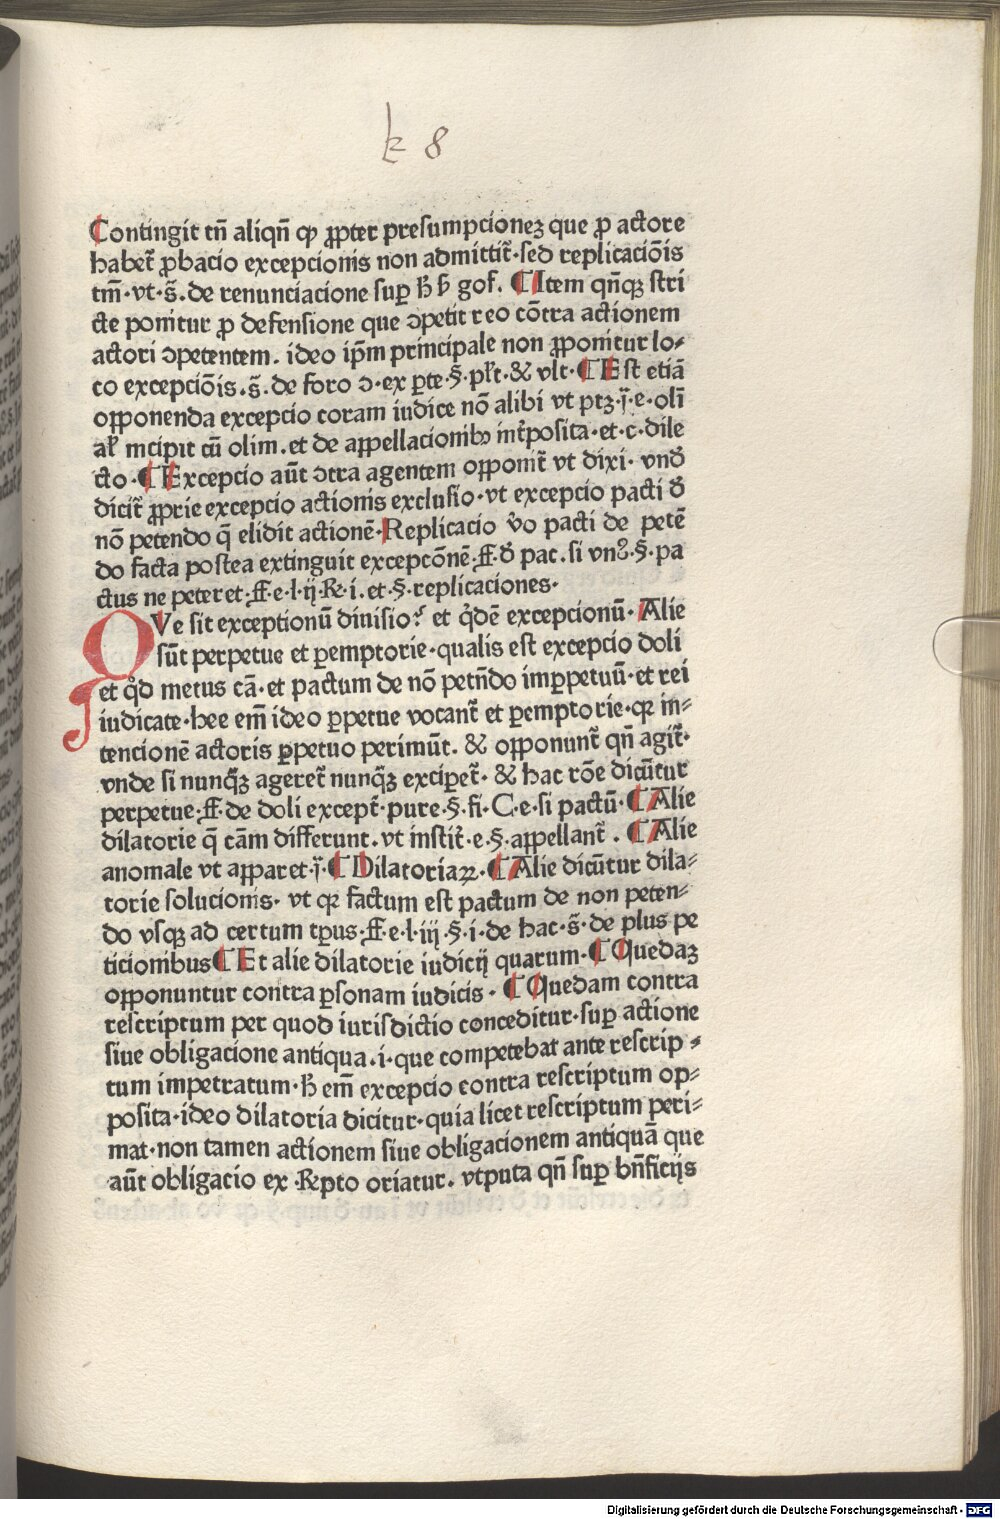 k 8
Contingit tn̄ aliqn̄ ꝙ ꝓpter presumpcionez que ꝓ actore
habet̄ ꝓbacio excepcionis non admittit̄·sed replicaciōis
tm̄·vt·s̄.de renunciacione suꝑ ħ ƀ gof. ¶Item qn̄qꝫ stri
cte ponitur ꝓ defensione que ↄpetit reo cōtra actionem
actori ↄpetentem. ideo ip̄m principale non ꝓponitur lo⸗
co excepciōis.s̄.de foro ↄ·ex ꝑte·§·pl̄t·& vlt·¶Est etiā
opponenda excepcio coram iudice nō alibi vt ptꝫ·j̄·e·oli̅
al̄ incipit cū olim.et de appellacionibꝫ int̄posita·et·c·dile
cto·¶Excepcio aūt ↄtra agentem opponit̄ vt dixi· vnđ
dicit̄ ꝓprie excepcio actionis exclusio·vt excepcio pacti đ
nō petendo q̄ elidit actionē·Replicacio v̄o pacti de petē
do facta postea extinguit excepcōnē·ff·đ pac.si vnꝰ·§·pa
ctus ne peteret·ff·e·l·ij·R̄·i.et·§·replicaciones·
QVe sit exceptionū diuisio? et q̇dē excepcionū·Alie
sūt perpetue et ꝑemptorie·qualis est excepcio doli
et qd̊ metus cā·et pactum de nō petn̄do imꝑpetuū·et rei
iudicate·hee em̄ ideo ꝑpetue vocant̄ et ꝑemptorie·qꝛ in⸗
tencionē actoris ꝑpetuo perimūt. & opponunt̄ qn̄ agit̄·
vnde si nunq̄ꝫ ageret̄ nunq̄ꝫ exciꝑet̄· & hac rōe dicūtur
perpetue·ff·de doli except̄·pure·§·fi·C·e·si pactū·¶Alie
dilatorie q̄ cām differunt.vt instit̄·e·§·appellant̄ . ¶Alie
anomale vt apparet·j̄·¶Dilatoriaꝝ·¶Alie dicūtur dila⸗
torie solucionis· vt qꝛ factum est pactum de non peten⸗
do vsqꝫ ad certum tp̄us·ff·e·l·iij·§·i·de hac·s̄·de plus pe
ticionibus¶Et alie dilatorie iudicij quarum·¶Quedaꝫ
opponuntur contra ꝑsonam iudicis·¶Quedam contra
rescriptum per quod iurisdictio conceditur·suꝑ actione
siue obligacione antiqua.i·que competebat ante rescrip⸗
tum impetratum·ħ em̄ excepcio contra rescriptum op⸗
posita·ideo dilatoria dicitur·quia licet rescriptum peri⸗
mat·non tamen actionem siue obligacionem antiquā que
aūt obligacio ex·R̄pto oriatur. vtputa qn̄ suꝑ bn̄ficijs
Digitalisierung gefördert durch die Deutsche Forschungsgemeinschaft - DFG